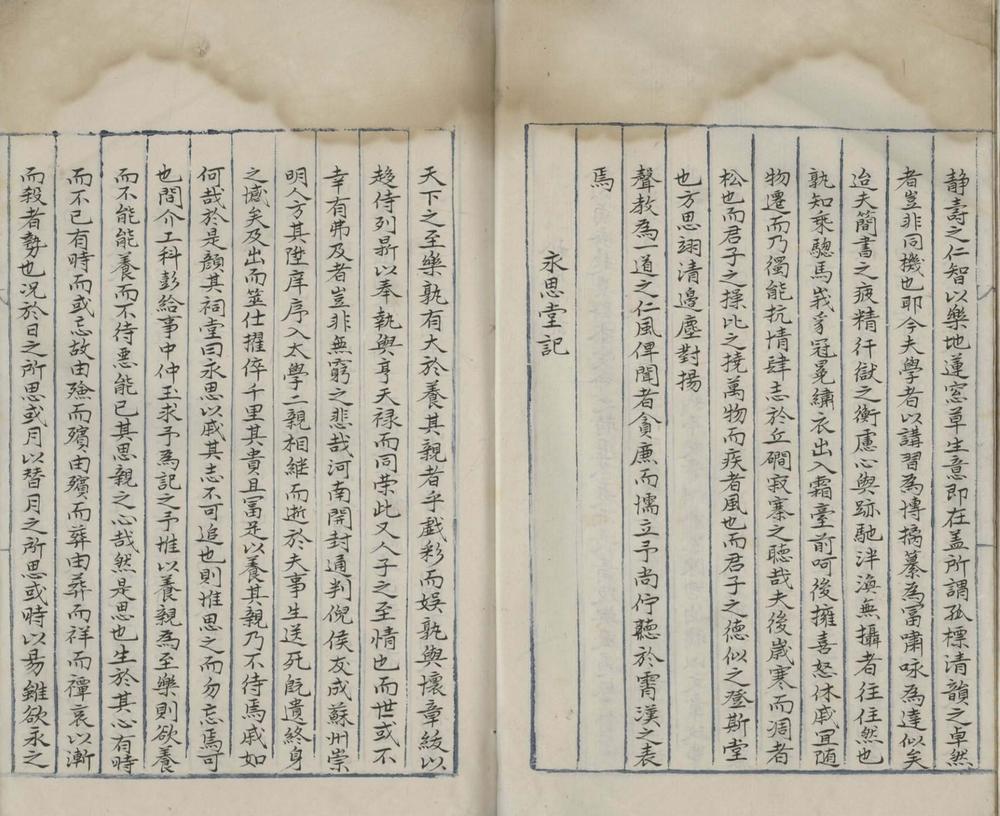 静壽之仁智以樂地蓮窓草生意即在盖所謂孤標清韻之卓然
者豈非同機也耶今夫學者以講習為博摛纂為富嘯咏為達似矣
迨夫簡書之疲精犴獄之衡慮心與跡馳泮渙無攝者往往然也
孰知乗驄馬峩豸冠冕繡衣出入霜臺前呵後擁喜怒休戚宜随
物遷而乃獨能抗情肆志於丘磵寂寥之聽哉夫後歲寒而凋者
松也而君子之操比之撓萬物而疾者風也而君子之德似之登斯堂
也方思翊清邊塵對揚
聲教為一道之仁風俾聞者貪廉而懦立予尚佇聽於霄漢之表
焉
永思堂記
天下之至樂孰有大於養其親者乎戯彩而娱孰與懷章紱以
趋侍列鼎以奉孰與享天禄而同荣此又人子之至情也而世或不
幸有弗及者豈非無窮之悲哉河南開封通判倪侯友成蘇州崇
明人方其陞庠序入太學二親相継而逝於夫事生送死旣遺終身
之憾矣及出而筮仕擢倅千里其貴且冨足以養其親乃不待焉戚如
何哉於是顏其祠堂曰永思以戚其志不可追也則惟思之而勿忘焉可
也間介工科彭給事中仲玉求予為記之予惟以養親為至樂則欲養
而不能能養而不待悪能已其思親之心哉然是思也生於其心有時
而不已有時而或忘故由殮而殯由殯而葬由葬而祥而禫哀以漸
而殺者勢也况於日之所思或月以替月之所思或時以易雖欲永之